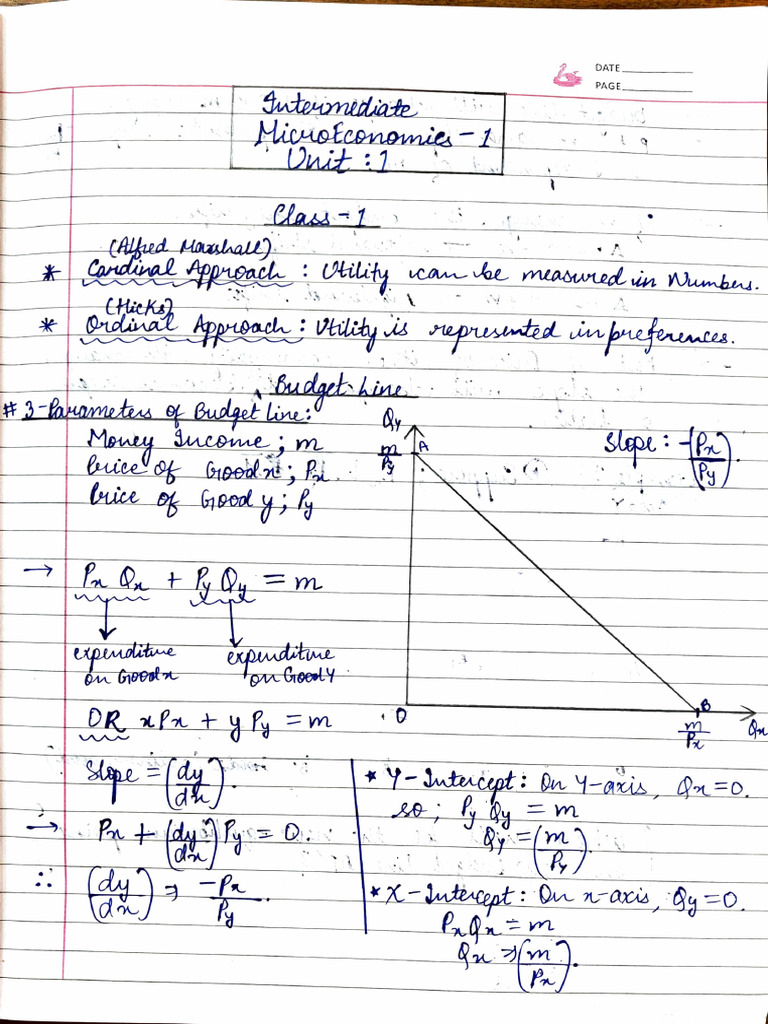 DATE
PAGE
Intermediate
MicroEconomics - 1
Unit : 1
Class - 1
(Alfred Marshall)
* Cardinal Approach : Utility can be measured in Numbers.
(Hicks)
* Ordinal Approach : Utility is represented in preferences.
Budget Line
# 3-Parameters of Budget line:
Money Income ; m
Price of Good x ; Px
Price of Good y ; Py
Qy
A
m/Py
Slope : -(Px/Py).
O
B
m/Px
Qx
→ Px Qx + Py Qy = m
expenditure on Good x
expenditure on Good y
OR xPx + yPy = m
Slope = (dy/dx).
→ Px + (dy/dx) Py = 0.
∴ (dy/dx) ⇒ -Px/Py.
* Y-Intercept : On Y-axis, Qx = 0.
so ; Py Qy = m
Qy = (m/Py).
* X-Intercept : On x-axis, Qy = 0.
PxQx = m
Qx ⇒ (m/Px).